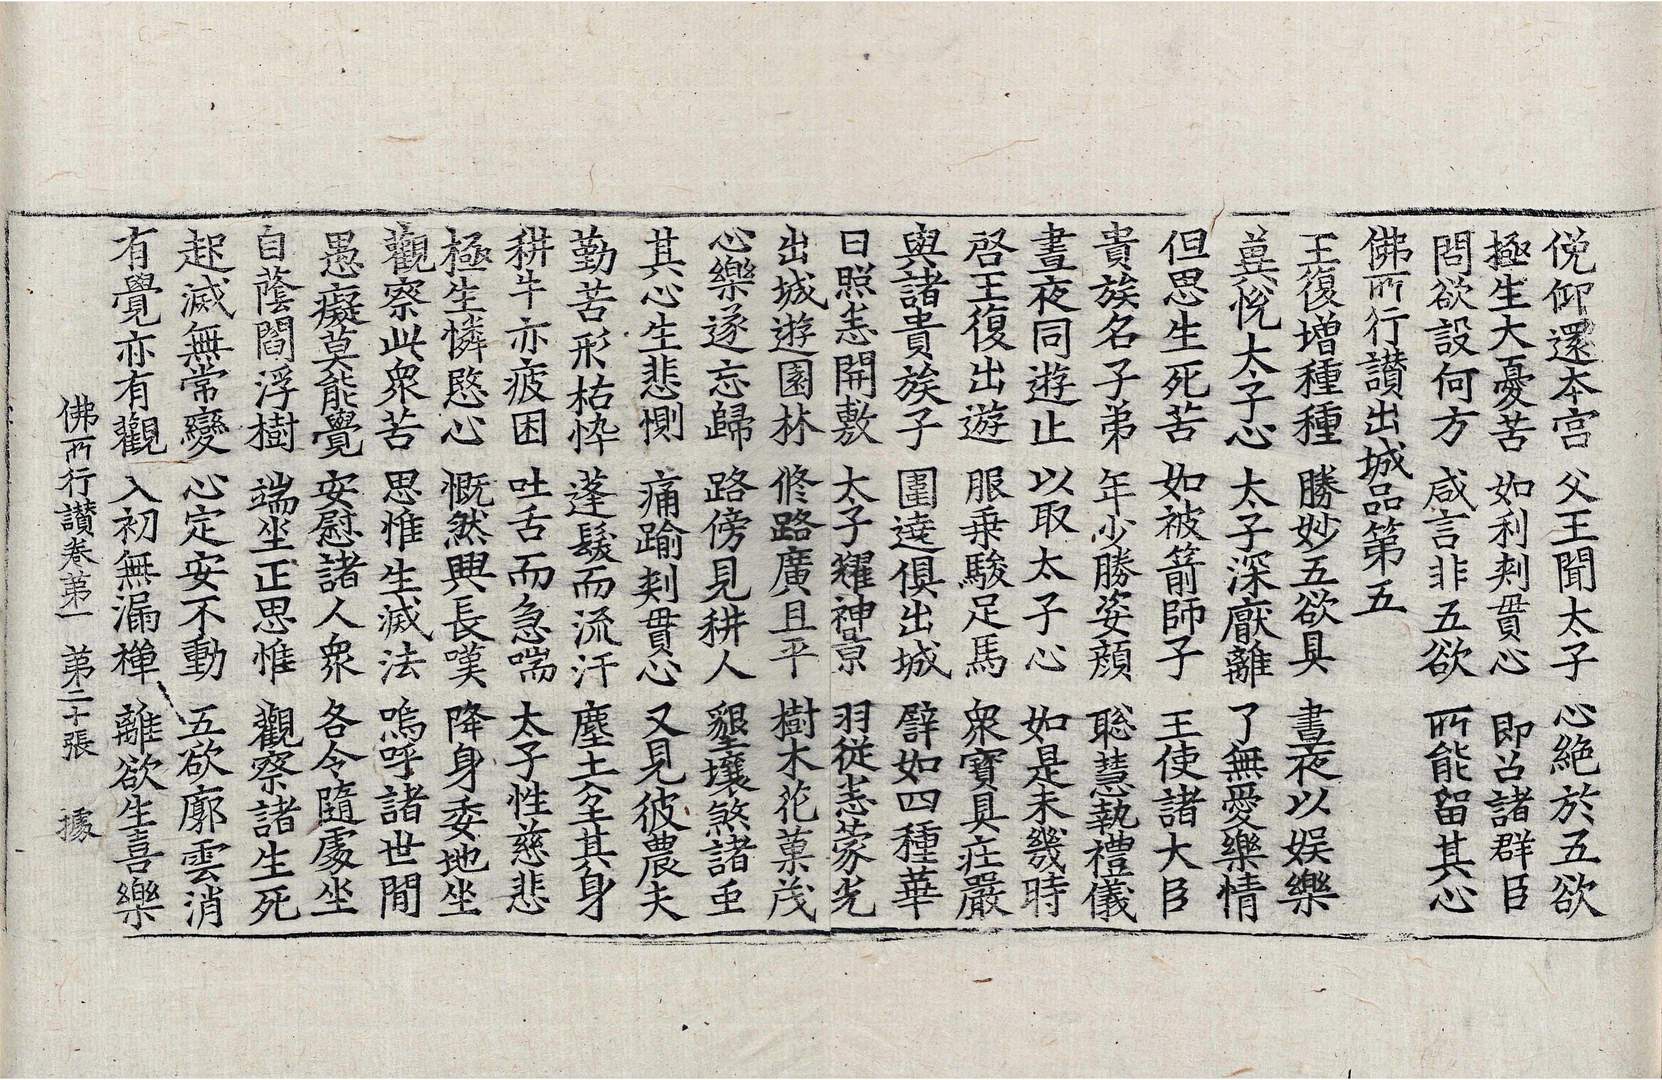 悅仰還本宮 父王聞太子 心絶於五欲
極生大憂苦 如利刾貫心 即召諸群臣
問欲設何方 咸言非五欲 所能留其心
佛所行讃出城品第五
王復增種種 勝妙五欲具 晝夜以娛樂
冀悅太子心 太子深厭離 了無愛樂情
但思生死苦 如被箭師子 王使諸大臣
貴族名子弟 年少勝姿顔 聡慧執禮儀
晝夜同遊止 以取太子心 如是未幾時
啓王復出遊 服乗駿足馬 衆寶具莊嚴
與諸貴族子 圍遶俱出城 譬如四種華
日照悉開敷 太子耀神景 羽從悉蒙光
出城遊園林 修路廣且平 樹木花菓茂
心樂遂忘歸 路傍見耕人 墾壤煞諸虫
其心生悲惻 痛踰刾貫心 又見彼農夫
勤苦形枯悴 蓬髮而流汗 塵土坌其身
耕牛亦疲困 吐舌而急喘 太子性慈悲
極生憐愍心 慨然興長嘆 降身委地坐
觀察此衆苦 思惟生滅法 嗚呼諸世間
愚癡莫能覺 安慰諸人衆 各令隨處坐
自蔭閻浮樹 端坐正思惟 觀察諸生死
起滅無常變 心定安不動 五欲廓雲消
有覺亦有觀 入初無漏禪 離欲生喜樂
佛所行讃卷第一 第二十張 據